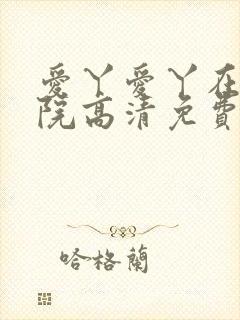 愛丫愛丫在
院高清免費
哈格蘭